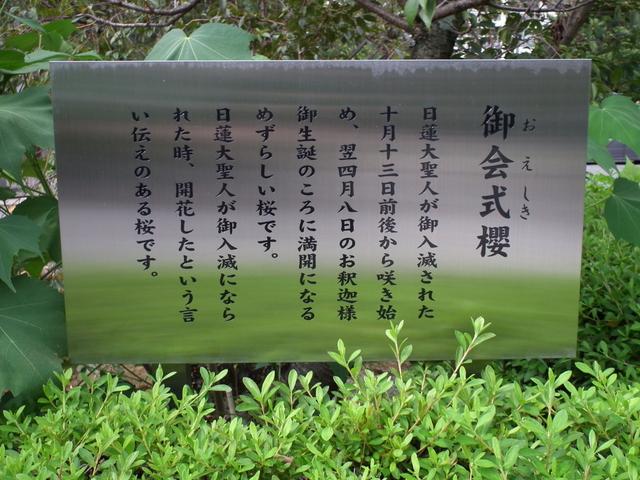 御会式櫻
おえしき
日蓮大聖人が御入滅された
十月十三日前後から咲き始
め、翌四月八日のお釈迦様
御生誕のころに満開になる
めずらしい桜です。
日蓮大聖人が御入滅になら
れた時、開花したという言
い伝えのある桜です。